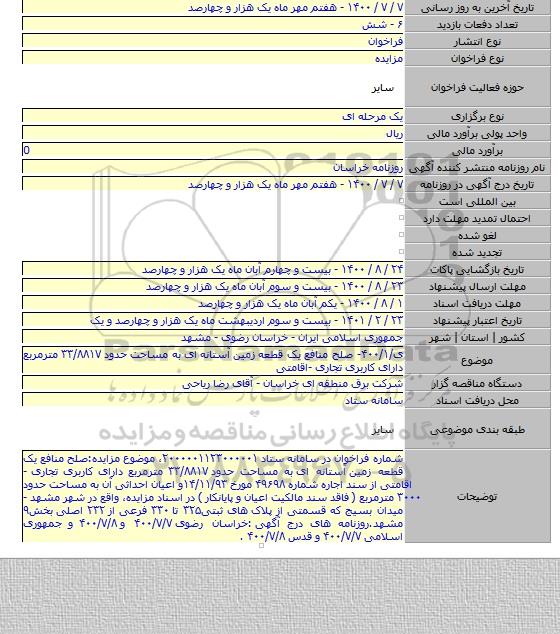 تاریخ آخرین به روز رسانی ۷ / ۷ / ۱۴۰۰ - هفتم مهر ماه یک هزار و چهارصد
تعداد دفعات بازدید ۶ - شش
نوع انتشار فراخوان
نوع فراخوان مزایده
حوزه فعالیت فراخوان سایر
نوع برگزاری یک مرحله ای
واحد پولی برآورد مالی ریال
برآورد مالی 0
نام روزنامه منتشر کننده آگهی روزنامه خراسان
تاریخ درج آگهی در روزنامه ۷ / ۷ / ۱۴۰۰ - هفتم مهر ماه یک هزار و چهارصد
بین المللی است
احتمال تمدید مهلت دارد
لغو شده
تجدید شده
تاریخ بازگشایی پاکات ۲۴ / ۸ / ۱۴۰۰ - بیست و چهارم آبان ماه یک هزار و چهارصد
مهلت ارسال پیشنهاد ۲۳ / ۸ / ۱۴۰۰ - بیست و سوم آبان ماه یک هزار و چهارصد
مهلت دریافت اسناد ۱ / ۸ / ۱۴۰۰ - یکم آبان ماه یک هزار و چهارصد
تاریخ اعتبار پیشنهاد ۲۳ / ۲ / ۱۴۰۱ - بیست و سوم اردیبهشت ماه یک هزار و چهارصد و یک
کشور | استان | شهر جمهوری اسلامی ایران - خراسان رضوی - مشهد
موضوع ی/۴۰۰/۱- صلح منافع یک قطعه زمین آستانه ای به مساحت حدود ۳۳/۸۸۱۷ مترمربع
دارای کاربری تجاری -اقامتی
دستگاه مناقصه گزار شرکت برق منطقه ای خراسان - آقای رضا ریاحی
محل دریافت اسناد سامانه ستاد
طبقه بندی موضوعی سایر
توضیحات شماره فراخوان در سامانه ستاد ۲۰۰۰۰۰۱۱۲۳۰۰۰۰۰۱، موضوع مزایده:صلح منافع یک
قطعه زمین آستانه ای به مساحت حدود ۳۳/۸۸۱۷ مترمربع دارای کاربری تجاری -
اقامتی از سند اجاره شماره ۴۹۶۹۸ مورخ ۱۴/۱۱/۹۳و اعیان احداثی آن به مساحت حدود
۳۰۰۰ مترمربع ( فاقد سند مالکیت اعیان و پایانکار ) در اسناد مزایده، واقع در شهر مشهد -
میدان بسیج که قسمتی از پلاک های ثبتی۳۲۵ تا ۳۳۰ فرعی از ۲۳۲ اصلی بخش۹
مشهد.روزنامه های درج آگهی :خراسان رضوی ۴۰۰/۷/۷ و ۴۰۰/۷/۸ و جمهوری
اسلامی ۴۰۰/۷/۷ و قدس ۴۰۰/۷/۸ .
ParsNamadData
پایگاه اطلاع رسانی مناقصه و مزایده